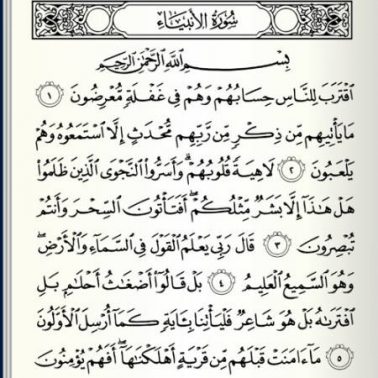 سُورَةُ الأَنبِيَاءِ
بِسْمِ اللَّهِ الرَّحْمَٰنِ الرَّحِيمِ
ٱقْتَرَبَ لِلنَّاسِ حِسَابُهُمْ وَهُمْ فِى غَفْلَةٍ مُّعْرِضُونَ ١
مَا يَأْتِيهِم مِّن ذِكْرٍ مِّن رَّبِّهِم مُّحْدَثٍ إِلَّا ٱسْتَمَعُوهُ وَهُمْ
يَلْعَبُونَ ٢ لَاهِيَةً قُلُوبُهُمْ ۗ وَأَسَرُّوا۟ ٱلنَّجْوَى ٱلَّذِينَ ظَلَمُوا۟
هَلْ هَٰذَآ إِلَّا بَشَرٌ مِّثْلُكُمْ ۖ أَفَتَأْتُونَ ٱلسِّحْرَ وَأَنتُمْ
تُبْصِرُونَ ٣ قَالَ رَبِّى يَعْلَمُ ٱلْقَوْلَ فِى ٱلسَّمَآءِ وَٱلْأَرْضِ ۖ
وَهُوَ ٱلسَّمِيعُ ٱلْعَلِيمُ ٤ بَلْ قَالُوٓا۟ أَضْغَٰثُ أَحْلَٰمٍۭ بَلِ
ٱفْتَرَىٰهُ بَلْ هُوَ شَاعِرٌ فَلْيَأْتِنَا بِـَٔايَةٍ كَمَآ أُرْسِلَ ٱلْأَوَّلُونَ
٥ مَآ ءَامَنَتْ قَبْلَهُم مِّن قَرْيَةٍ أَهْلَكْنَٰهَآ ۖ أَفَهُمْ يُؤْمِنُونَ